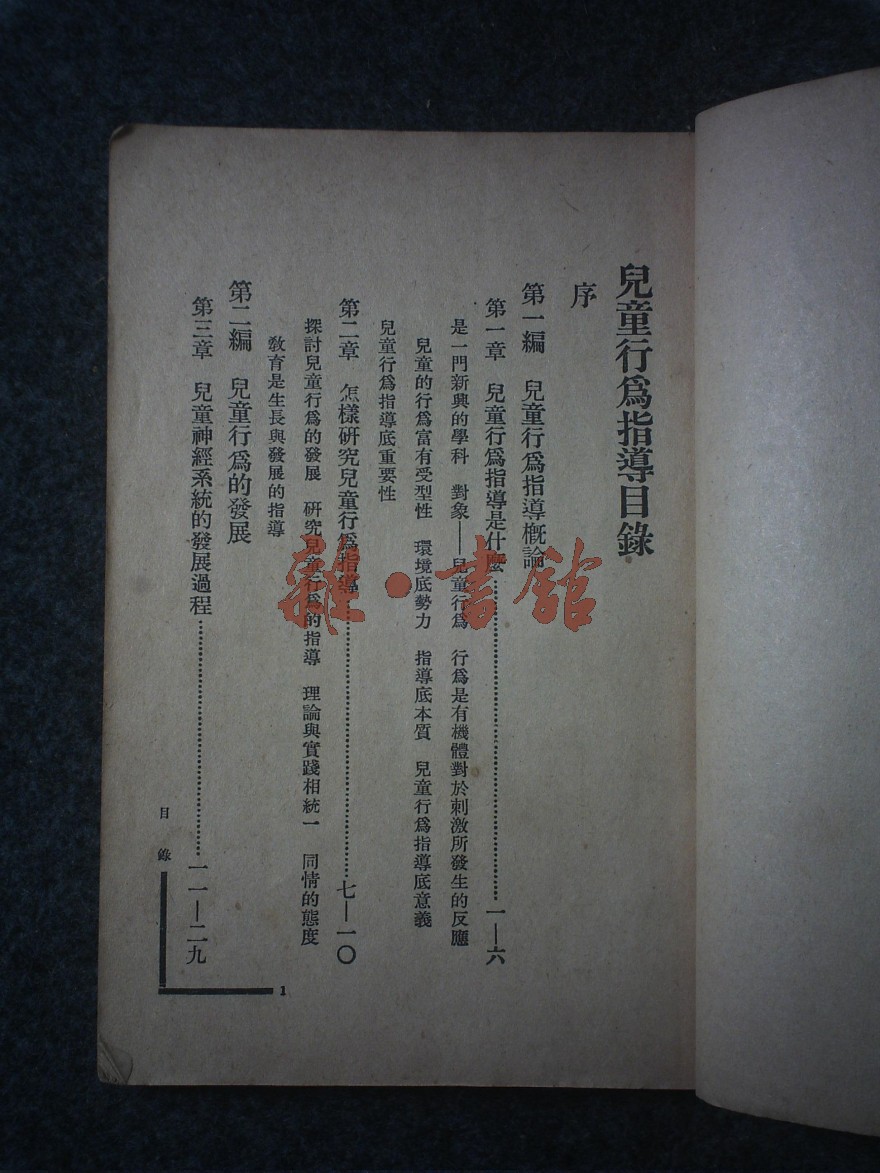 兒童行爲指導目錄
序
第一編　兒童行爲指導槪論
第一章　兒童行爲指導是什麼……一—六
是一門新興的學科　對象——兒童行爲　行爲是有機體對於刺激所發生的反應
兒童的行爲富有受型性　環境底勢力　指導底本質　兒童行爲指導底意義
兒童行爲指導底重要性
第二章　怎樣研究兒童行爲指導……七—一〇
探討兒童行爲的發展　研究兒童行爲的指導　理論與實踐相統一　同情的態度
敎育是生長與發展的指導
第二編　兒童行爲的發展
第三章　兒童神經系統的發展過程……一一—二九
目錄
1
雜·書館